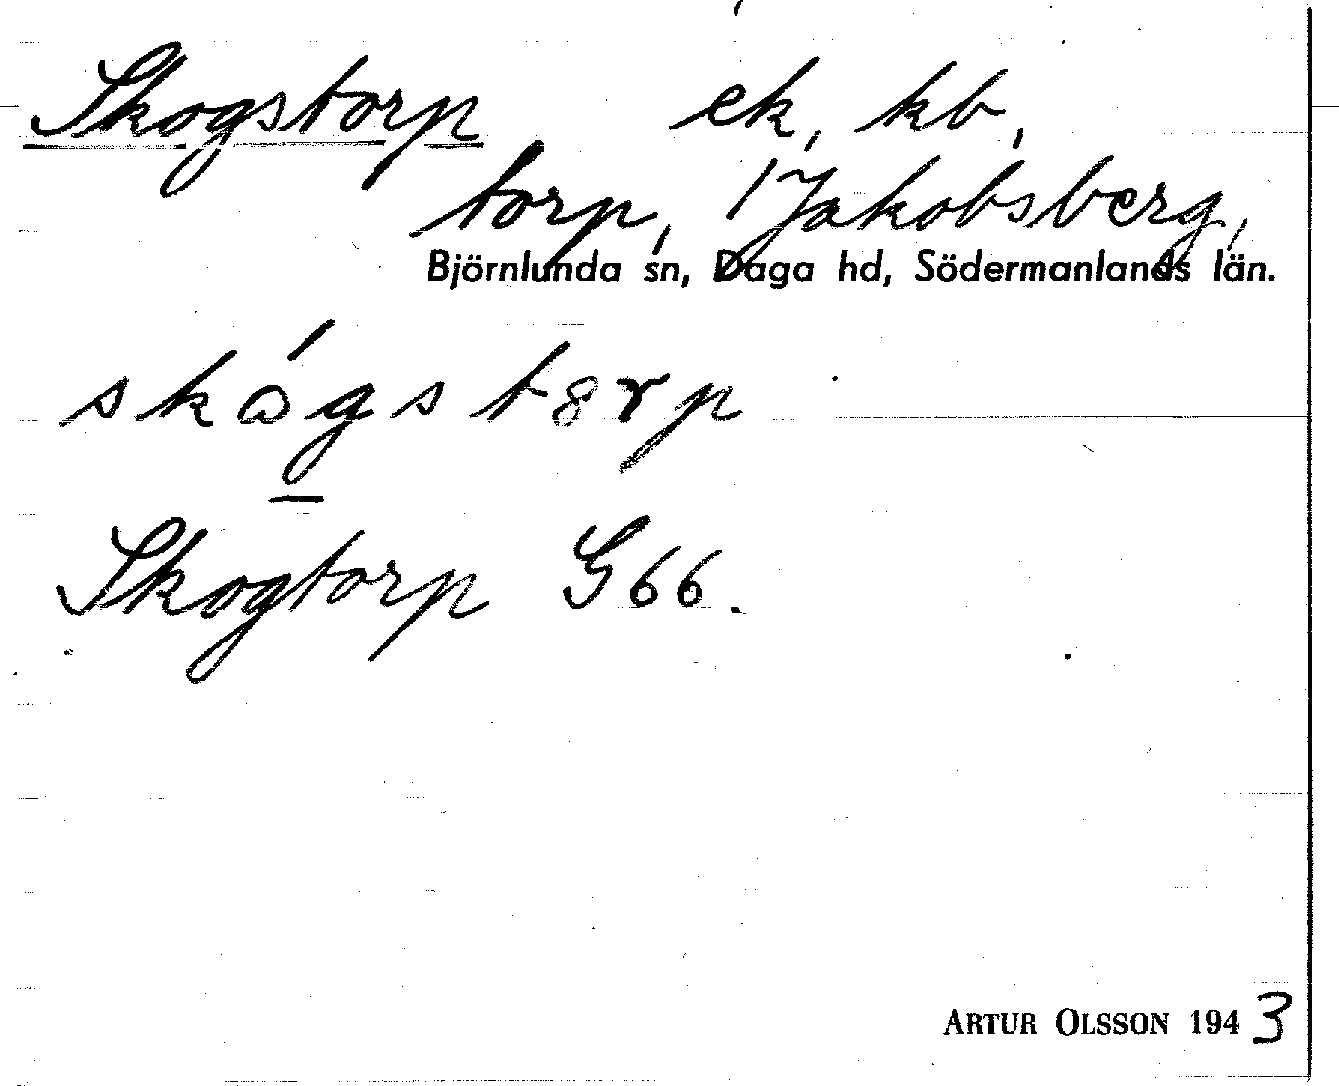 Skogstorp ek, kb,
torp, /Jakobsberg,
Björnlunda sn, Daga hd, Södermanlands län.
skågstorp
Skogtorp G66.
ARTUR OLSSON 1943